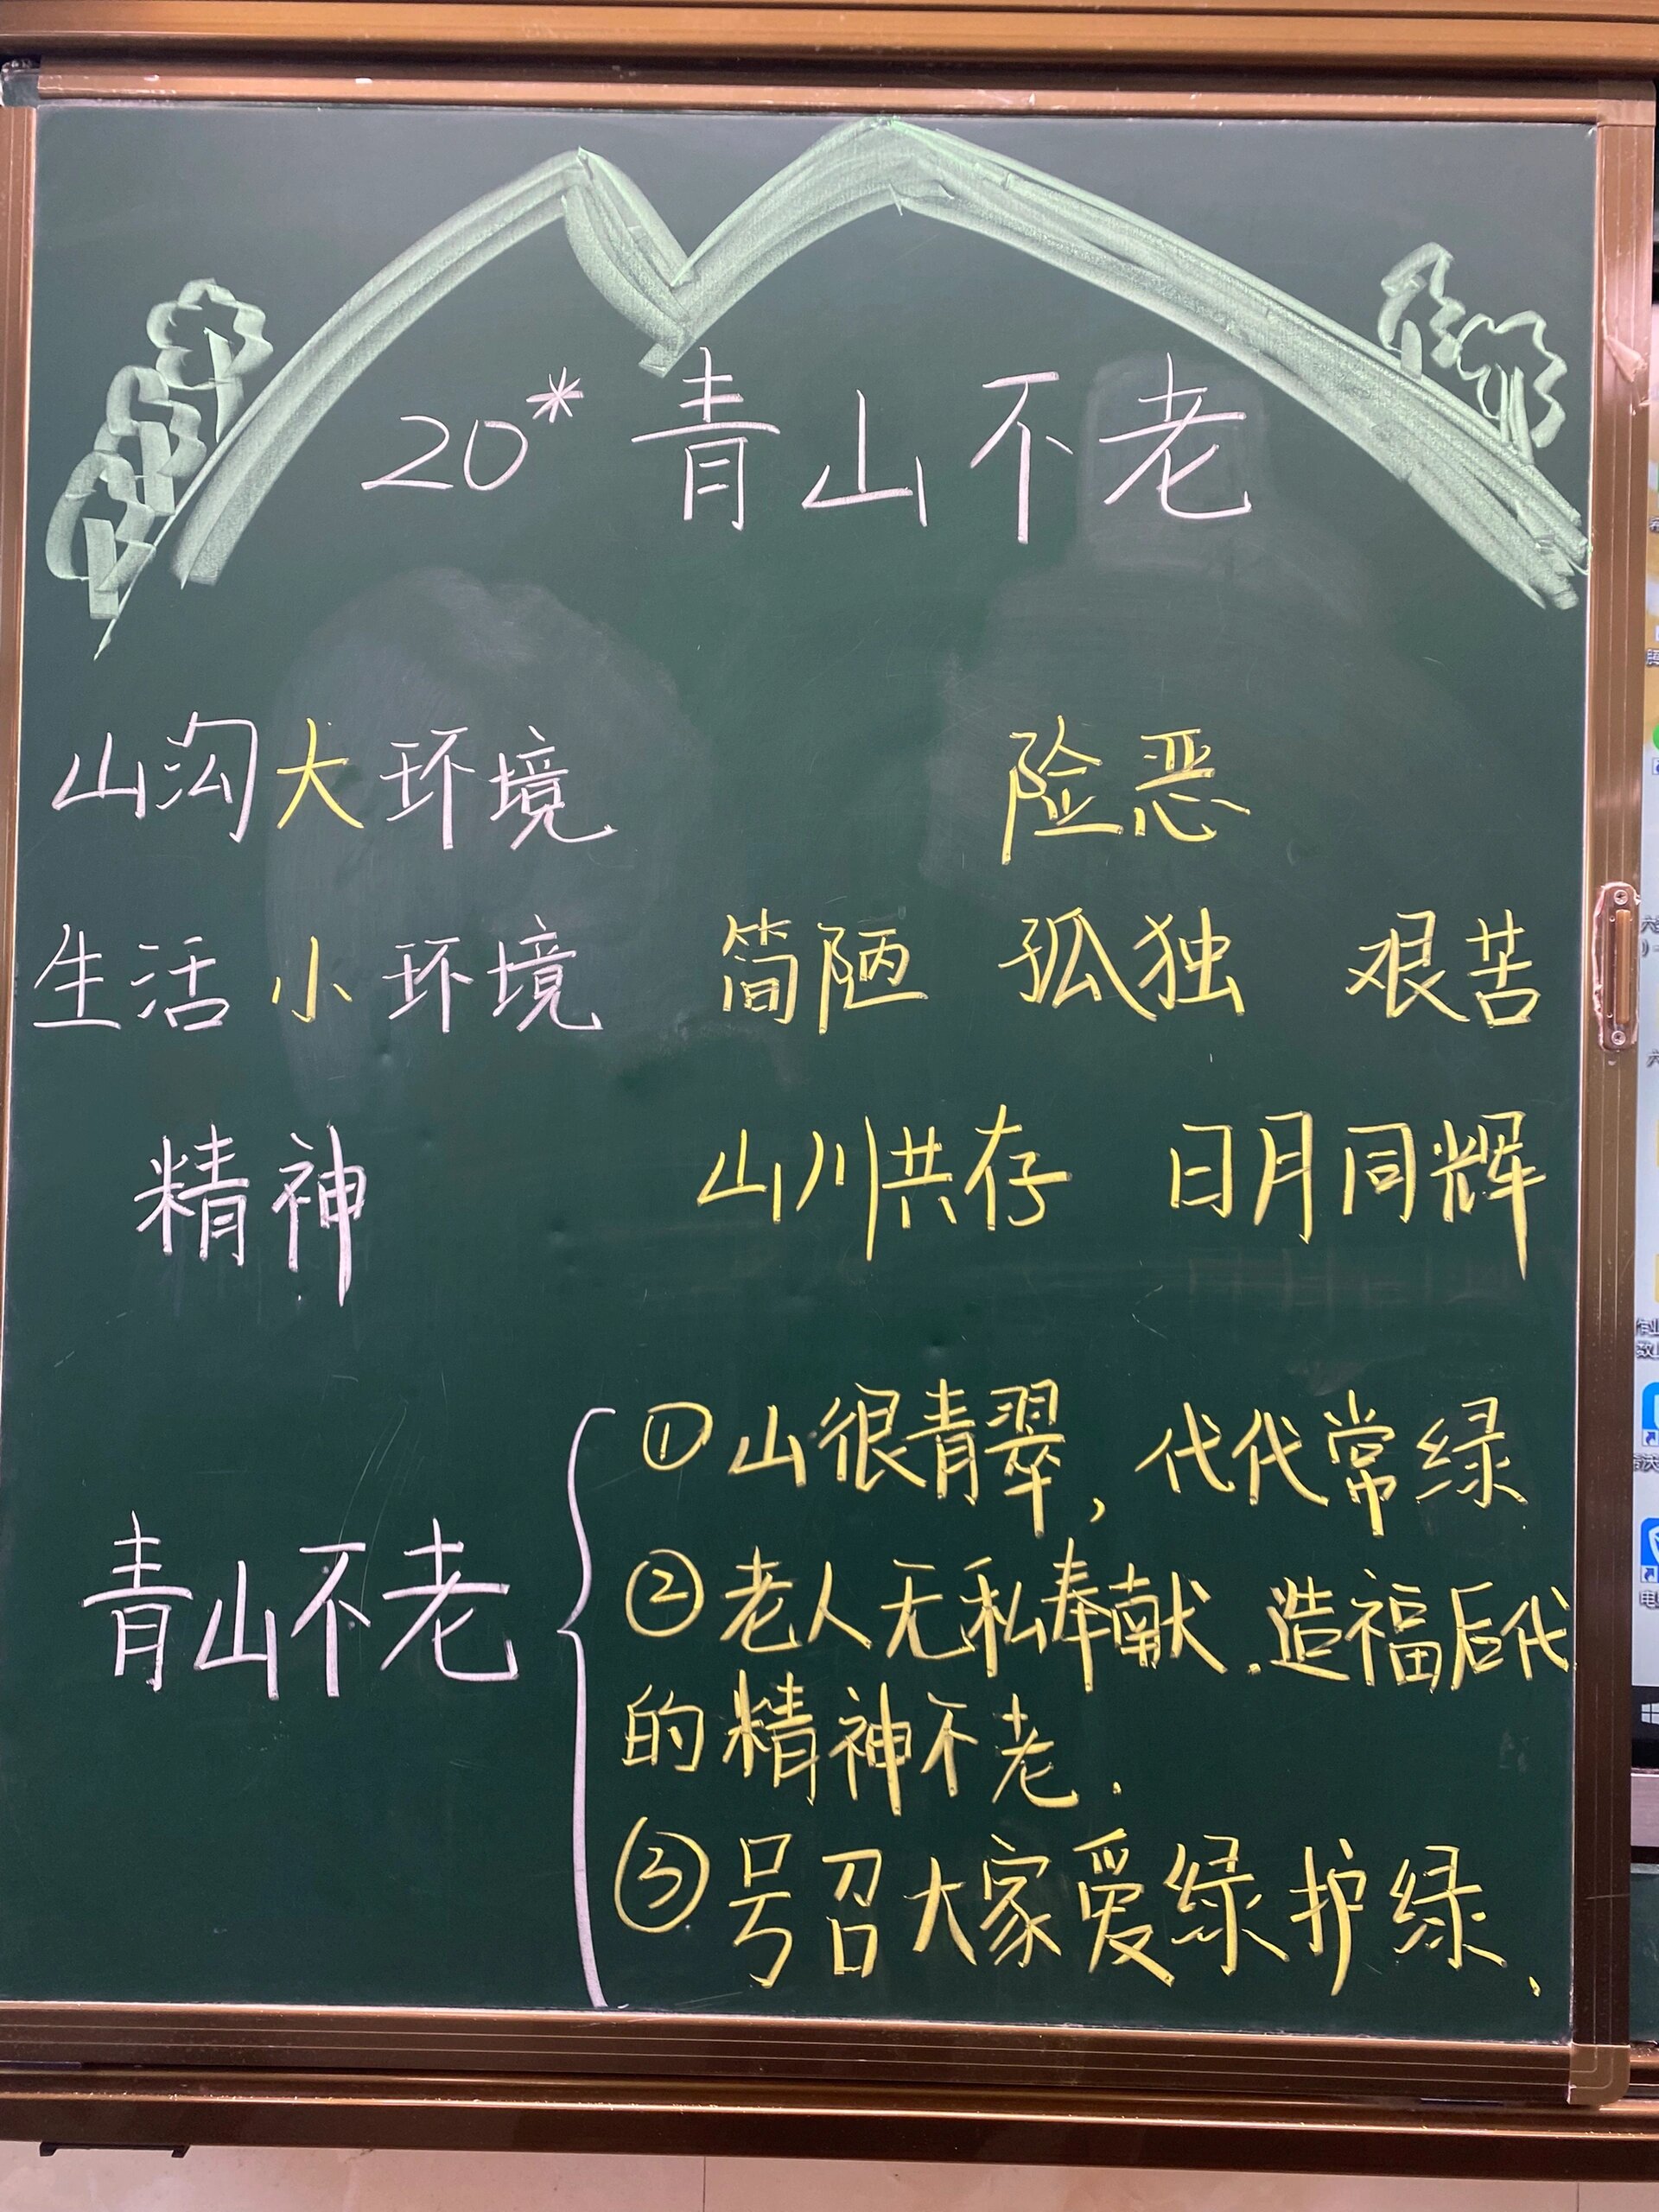 20*青山不老
山沟大环境 险恶
生活小环境 简陋 孤独 艰苦
精神 山川共存 日月同辉
青山不老
①山很青翠，代代常绿
②老人无私奉献.造福后代
的精神不老.
③号召大家爱绿护绿、